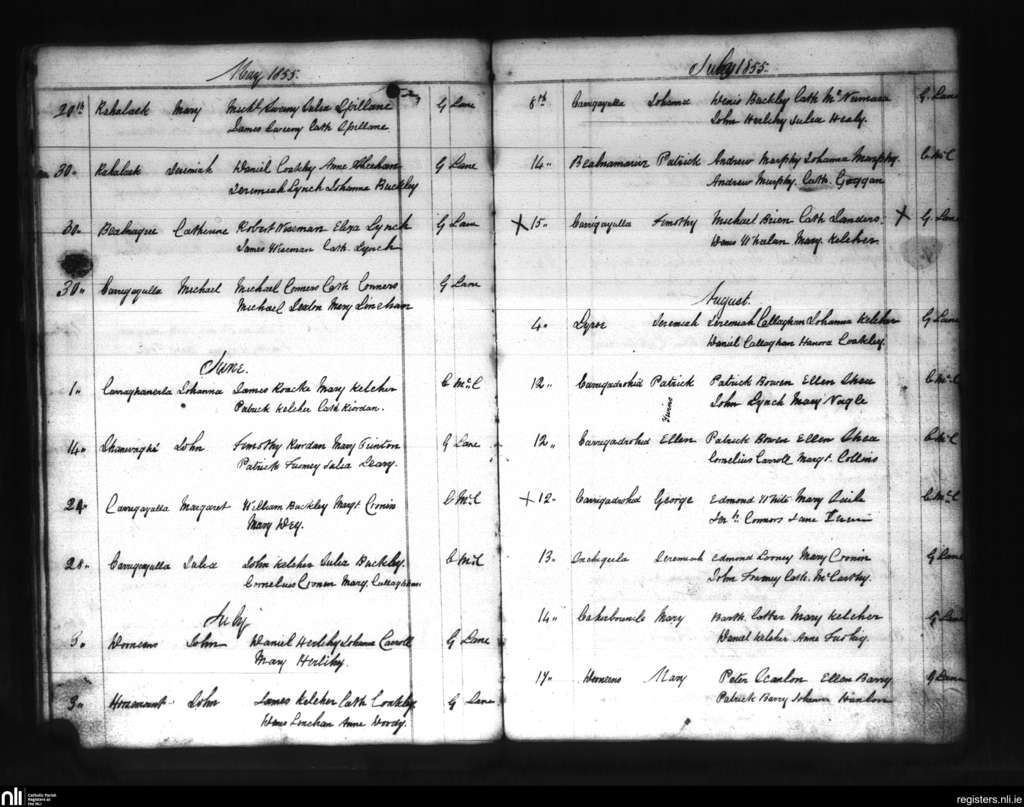 May 1855.
29th Rahalisk Mary Michl Sweeny Julia Spillane G Lane
James Sweeny Cath Spillane
30" Rahalisk Jeremiah Daniel Coakley Anne Sheehan G Lane
Jeremiah Lynch Johanna Buckley
30" Bealnagree Catherine Robert Wiseman Eliza Lynch G Lane
James Wiseman Cath. Lynch
30" Carrigayulla Michael Michael Conners Cath Conners G Lane
Michael Sexton Mary Linehan
June.
1" Johanna James Roacke Mary Kelcher C McC
Patrick Kelcher Cath Riordan.
14" John Timothy Riordan Mary G Lane
Patrick Julia Leary.
24" Carrigayulla Margaret William Buckley Margt Cronin C McC
Mary
Carrigayulla Julia John Kelcher Julia Buckley. C McC
Cornelius Cronin Mary. Callaghan
July
3" John Daniel Herlihy Johanna Carroll G Lane
Mary Herlihy.
3" Horsemount John James Kelcher Cath Coakley G Lane
Denis Linehan Anne
July 1855.
8th Carrigayulla Johanna Denis Buckley Cath McNamara G Lane
John Herlihy Julia Healy.
14" Bealnamorrive Patrick Andrew Murphy Johanna Murphy. C McC
Andrew Murphy. Cath. Goggan
X 15" Carrigayulla Timothy Michael Brien Cath Landers. X G Lane
Denis Whelan Mary. Kelcher
August.
4" Lyroe Jeremiah Jeremiah Callaghan Johanna Kelcher G Lane
Daniel Callaghan Hanora Coakley.
12" Carrigadrohid Patrick Patrick Bowen Ellen Shea C McC
John Lynch Mary Nagle
Twins
12" Carrigadrohid Ellen Patrick Bowen Ellen Shea C McC
Cornelius Carroll Margt. Collins
X 12" Carrigadrohid George Edmond White Mary C McC
Connors Jane
13" Inchigeela Jeremiah Edmond Looney Mary Cronin G Lane
John Cath. McCarthy.
14" Mary Barth. Cotter Mary Kelcher G Lane
Daniel Kelcher Anne
17" Mary Peter Scanlon Ellen Barry G Lane
Patrick Barry Johanna
nli Catholic Parish Registers at the NLI
registers.nli.ie